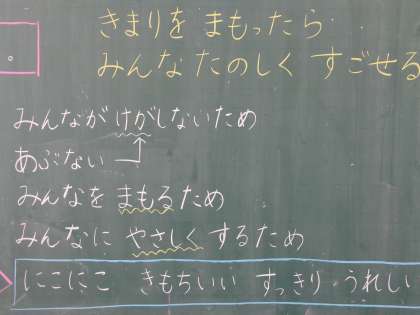 きまりを まもったら
みんなたのしく すごせる
みんなが けがしないため
あぶない
みんなを まもるため
みんなに やさしく するため
にこにこ きもちいい すっきり うれしい